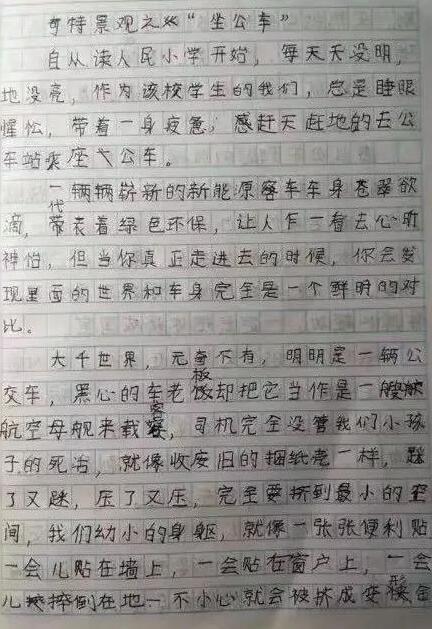 奇特景观之 "坐公车"
自从读人民小学开始，每天天没明，
地没亮，作为该校学生的我们，总是睡眼
惺忪，带着一身疲惫，感赶天赶地的去公
车站乘座公车。
一辆辆崭新的新能源客车车身苍翠欲
滴，代表着绿色环保，让人乍一看去心旷
神怡，但当你真正走进去的时候，你会发
现里面的世界和车身完全是一个鲜明的对
比。
大千世界，无奇不有，明明是一辆公
交车，黑心的车老板却把它当作是一艘
航空母舰来载客，司机完全没管我们小孩
子的死活，就像收废旧的捆纸壳一样，踩
了又踩，压了又压，完全要挤到最小的空
间，我们幼小的身躯，就像一张张便利贴
一会儿贴在墙上，一会贴在窗户上，一会
儿摔倒在地一不小心就会被挤成变形金